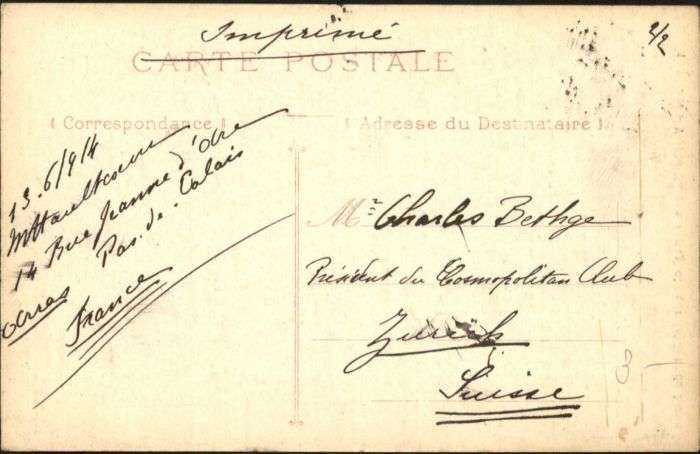 Imprimé
CARTE POSTALE
2/2
Correspondance
Adresse du Destinataire
13.6/914
14 Rue Jeanne d'Arc
Arras Pas-de-Calais
France
Mr Charles Bethge
Président du Cosmopolitan Club
Zurich
Suisse